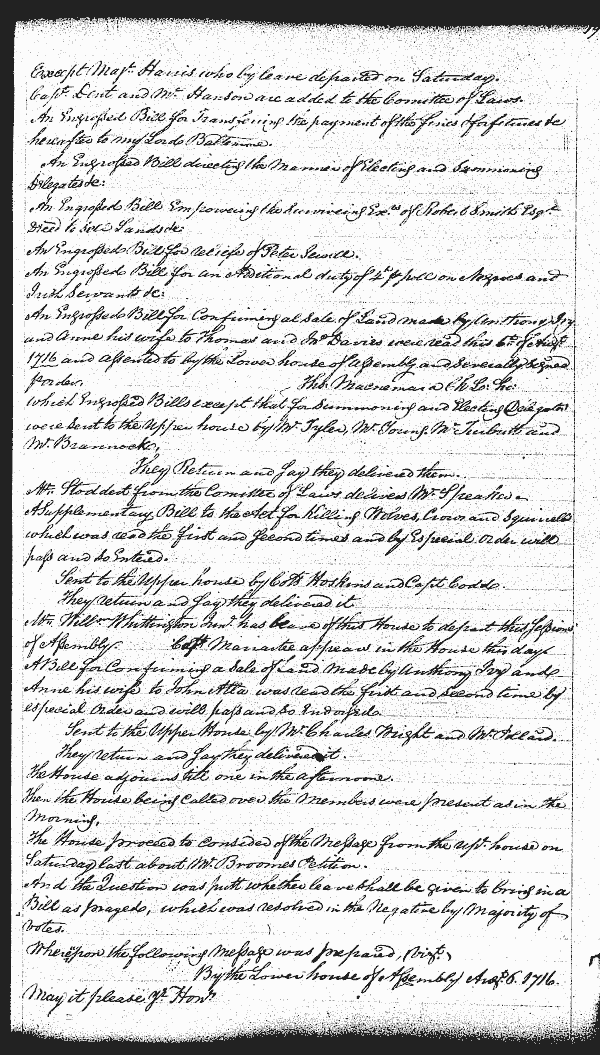 Except Majr. Harris who by leave departed on Saturday.
Capt. Dent and Mr. Hanson are added to the Comittee of Laws.
An Engrossed Bill for Transferring the payment of the fines & forfeitures &c
hereafter to my Lord Baltimore.
An Engrossed Bill directing the Manner of Electing and Summoning
Delegates &c:
An Engrossed Bill Empowering the Surviveing Exrs. of Robert Smith Esqr.
Deced to sell Lands &c
An Engrossed Bill for reliefe of Peter Sewell.
An Engrossed Bill for an Additional duty of on Negroes and
Irish Servants &c:
An Engrossed Bill for Confirming a Sale of Land made by Anthony Ivy
and Anne his wife to Thomas and Jno. Davies were read this 6th. of Augt.
1716 and assented to by the Lower house of Assembly and Severally Signed
p order. Tho. Macnemara Cl. Lo. Ho:
which Engrossed Bills except that for Summoning and Electing Delegats
were sent to the Upper house by Mr. Tyler, Mr. Young Mr. Turbutt and
Mr. Brannock,
They Return and Say they delivered them.
Mr. Stoddert from the Comittee of Laws delivers Mr. Speaker
A Supplementary Bill to the Act for Killing Wolves, Crows and Squirrells
which was read the first and Second times and by Especial Order will
pass and so Entered.
Sent to the Upper house by Coll. Hoskins and Capt. Codd.
They return and Say they delivered it
Mr. Willm. Whittington Junr. has leave of this House to depart this Session
of Assembly. Capt. Mariartee appears in the House this day
A Bill for Confirming a Sale of Land made by Anthony Ivy and
Anne his wife to John Atta was read the first and second time by
especial Order and will pass and so Endorsed
Sent to the Upper House by Mr. Charles Wright and Mr.
They return and Say they delivered it.
The House adjourns till one in the afternoone.
Then the House being called over the Members were present as in the
Morning,
The House proceed to consider of the Message from the upr. house on
Saturday last about Mr. Broomes Petition.
And the Question was putt whether leave shall be given to bring in a
Bill as prayed, which was resolved in the Negative by Majority of
Votes.
Whereupon the following Message was prepaired, (vizt.)
By the Lower house of Assembly Augt. 6. 1716.
May it please yr. Honrs.